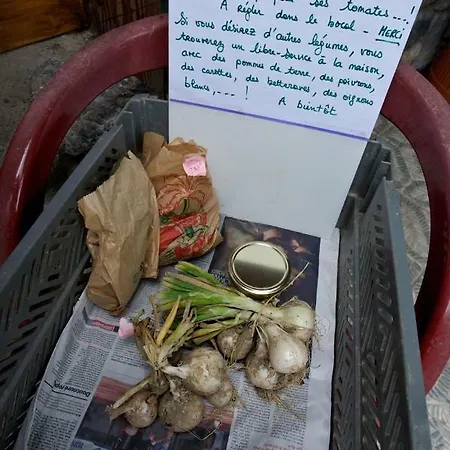 ses tomates...!
A régler dans le bocal - MERCI
Si vous désirez d'autres légumes, vous
trouverez un libre-service à la maison,
avec des pommes de terre, des poivrons,
des carottes, des betteraves, des oignons
blancs, ...!
A bientôt